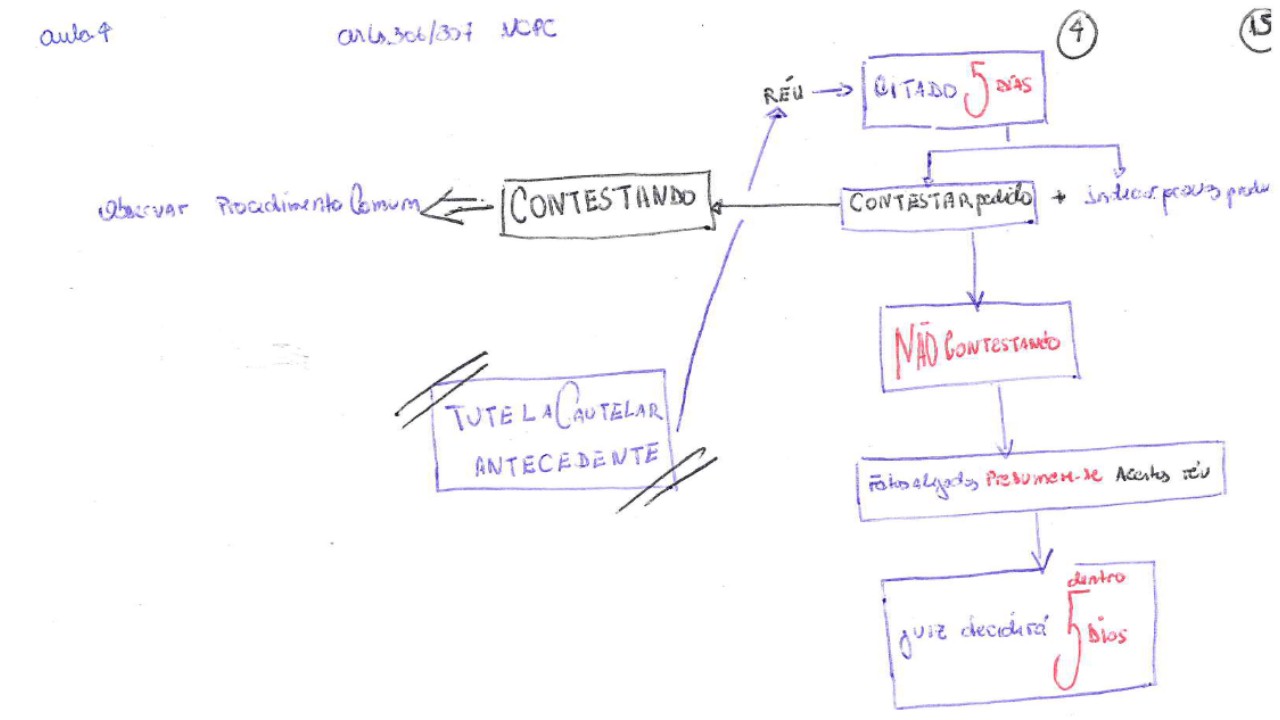 aula 4
arts. 306/307 NCPC
4
15
RÉU
CITADO 5 DIAS
Observar Procedimento Comum
CONTESTANDO
CONTESTAR pedido
+ indicar provas
NÃO CONTESTANDO
TUTELA CAUTELAR
ANTECEDENTE
Fatos alegados Presumem-se Aceitos réu
juiz decidirá dentro 5 Dias